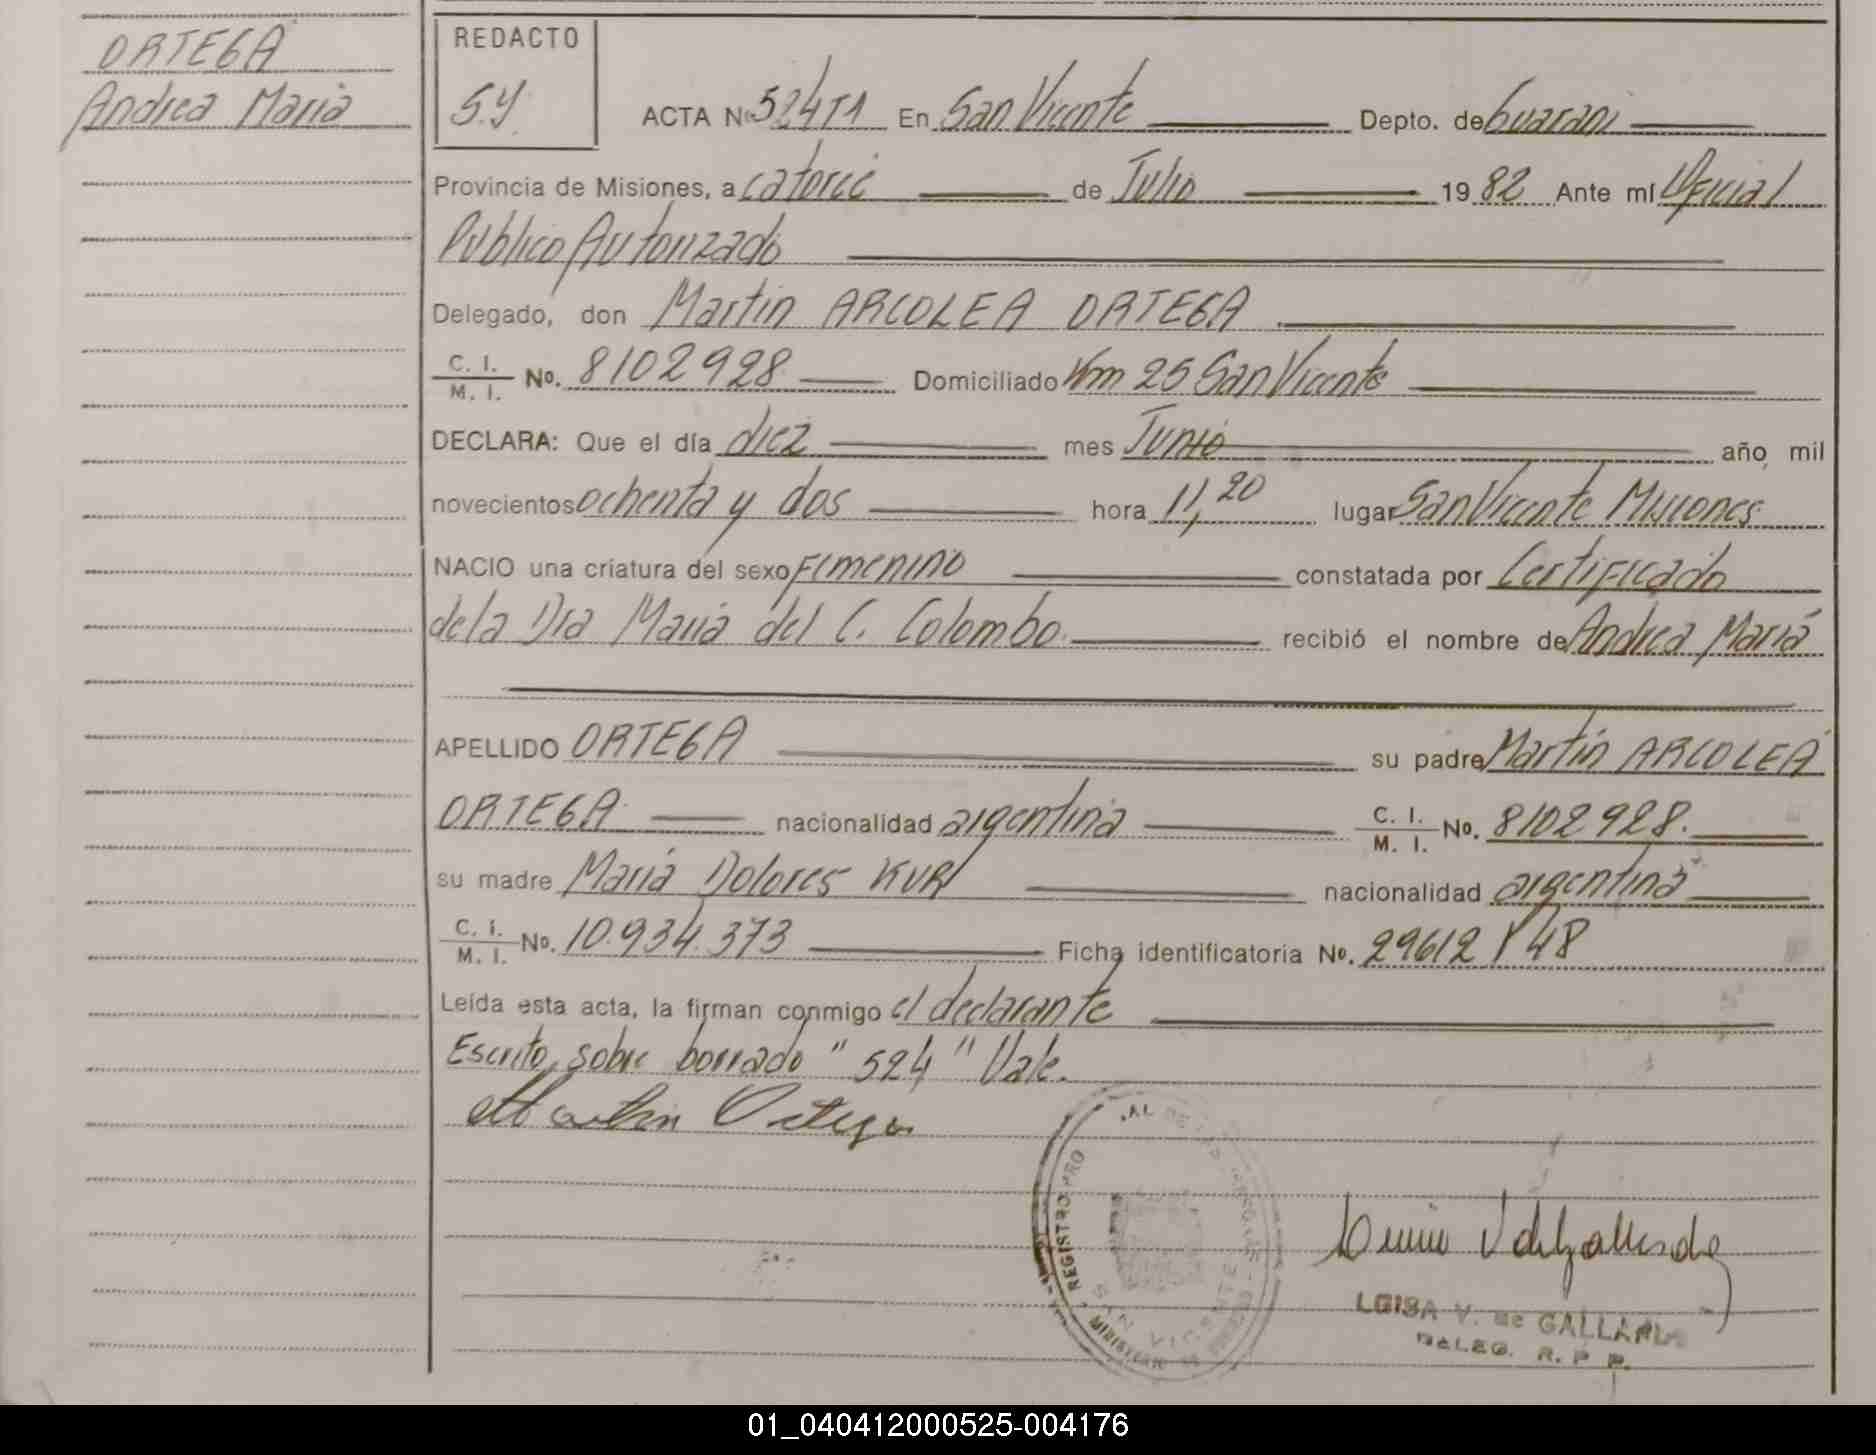 ORTEGA
Andrea Maria
REDACTO
S.Y.
ACTA Nº 524T1 En San Vicente Depto. de Guarani
Provincia de Misiones, a catorce de Julio 1982 Ante mí Oficial
Publico Autorizado
Delegado, don Martin ARCOLEA ORTEGA
C. I. / M. I. No. 8102928 Domiciliado Km 25 San Vicente
DECLARA: Que el día diez mes Junio año mil
novecientos ochenta y dos hora 11,20 lugar San Vicente Misiones
NACIO una criatura del sexo Femenino constatada por Certificado
de la Dra Maria del C. Colombo. recibió el nombre de Andrea Maria
APELLIDO ORTEGA su padre Martin ARCOLEA
ORTEGA nacionalidad argentina C. I. / M. I. No. 8102928.
su madre Maria Dolores nacionalidad argentina
C. I. / M. I. No. 10.934.373 Ficha identificatoria No. 29612 48
Leída esta acta, la firman conmigo el declarante
Escrito sobre borrado "524" Vale.
Martin Ortega
REGISTRO PRO AL DE LAS PERSONAS
SAN VICENTE
MINISTERIO DE
V. de GALLARDO
DELEG. R. P. P.
01_040412000525-004176